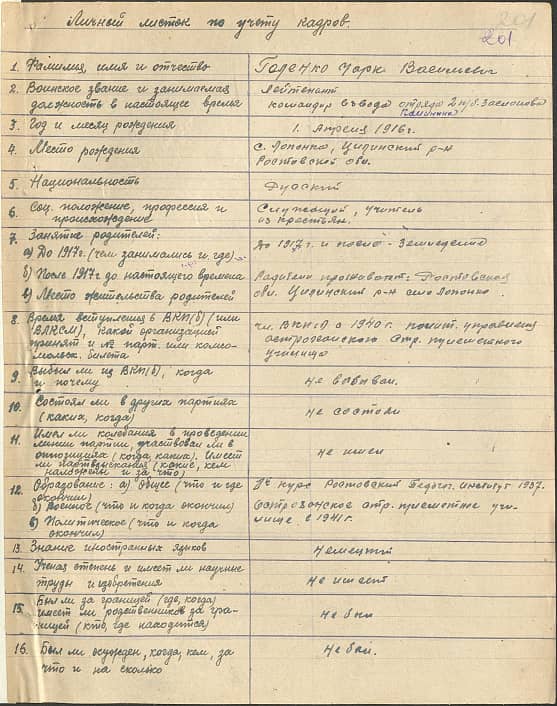 Личный листок по учету кадров.
201
201
1. Фамилия, имя и отчество
Василиевич
2. Воинское звание и занимаемая
должность в настоящее время
Лейтенант
командир взвода отряда 2 п/б. Заслонова
3. Год и месяц рождения
1. Апреля 1916 г.
4. Место рождения
с. Лопанко, р-н
Ростовской обл.
5. Национальность
Русский
6. Соц. положение, профессия и
происхождение
Служащий, учитель
из крестьян.
7. Занятие родителей:
а) До 1917 г. (чем занимались и где)
До 1917 г. и после - Земледелие
б) После 1917 г до настоящего времени
в) Место жительства родителей
Родители проживают: Ростовская
обл. р-н село Лопанко.
8. Время вступления в ВКП(б) (или
ВЛКСМ), какой организацией
принят и № парт. или комсо-
мольск. билета
чл. ВКП(б) с 1940 г. полит. управления
стр. пулеметного
училища
9. Выбыл ли из ВКП(б), когда
и почему
не выбывал.
10. Состоял ли в других партиях
(каких, когда)
не состоял
11. Имел ли колебания в проведении
линии партии, участвовал ли в
оппозициях (когда, каких). Имеет
ли партвзыскания (какие, кем
наложены и за что)
не имел
12. Образование: а) Общее (что и где
окончил)
б) Военное (что и когда окончил)
в) Политическое (что и когда
окончил)
курс Ростовский Педагог. Институт 1937.
стр. пулеметное учи-
лище в 1941 г.
13. Знание иностранных языков
Немецкий
14. Ученая степень и имеет ли научные
труды и изобретения
Не имеет
15. Был ли за границей (где, когда)
имеет ли родственников за гра-
ницей (кто, где находится)
Не был
16. Был ли осужден, когда, кем, за
что и на сколько
Не был.